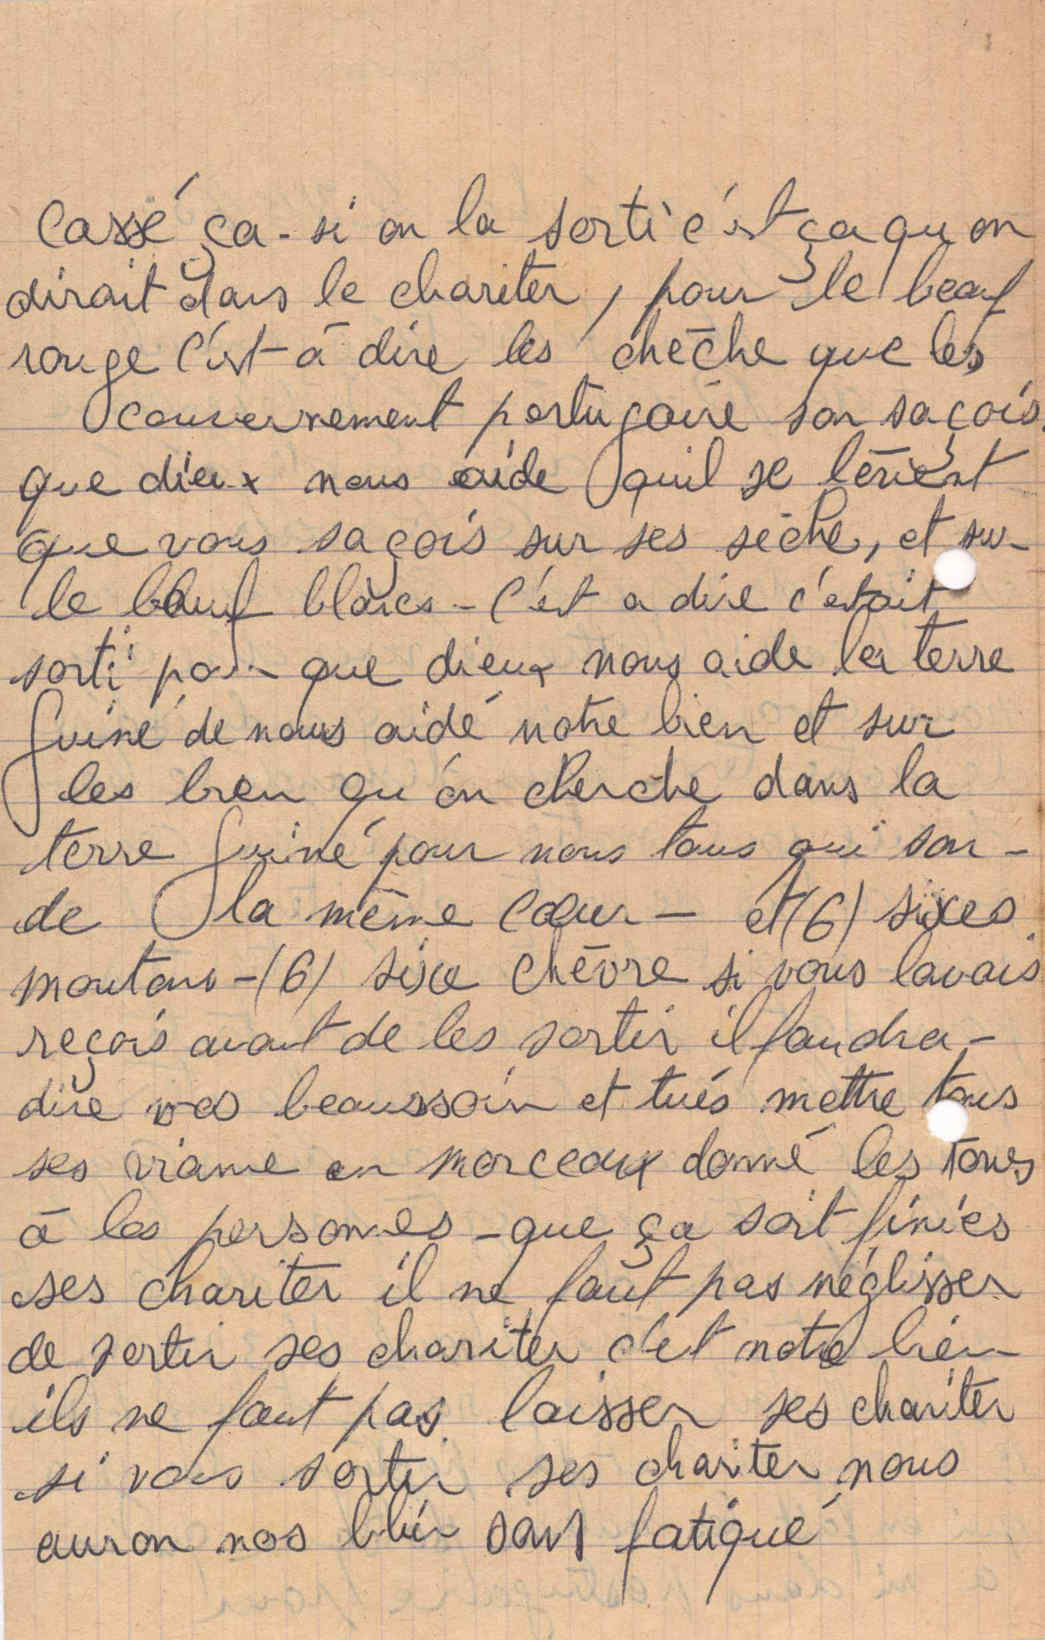 Cassé ça - si on la sorti c'est ça qu on
dirait dans le chariter, pour le beauf
rouge c'est-à dire les chèche que les
Gouvernement portugaire son saçois.
que dieux nous aide quil se lèvent
que vous saçois sur ses sèche, et sur
le bœuf blancs - c'est a dire c'etait
sorti pour que dieux nous aide la terre
Guiné de nous aidé notre bien et sur
les bien qu'on cherche dans la
terre Guiné pour nous tous qui son -
de la même cœur - et (6) sixes
moutons - (6) sixe chèvre si vous lavais
reçois avant de les sortir il faudra -
dire vos beaussoin et tués mettre tous
ses viame en morceaux donné les tous
à les personnes - que ça soit finies
ses chariter il ne faut pas néglisser
de sortir ses chariter c'et notre bien
ils ne faut pas laisser ses chariter
si vous sortir ses chariter nous
auron nos bien sans fatigué